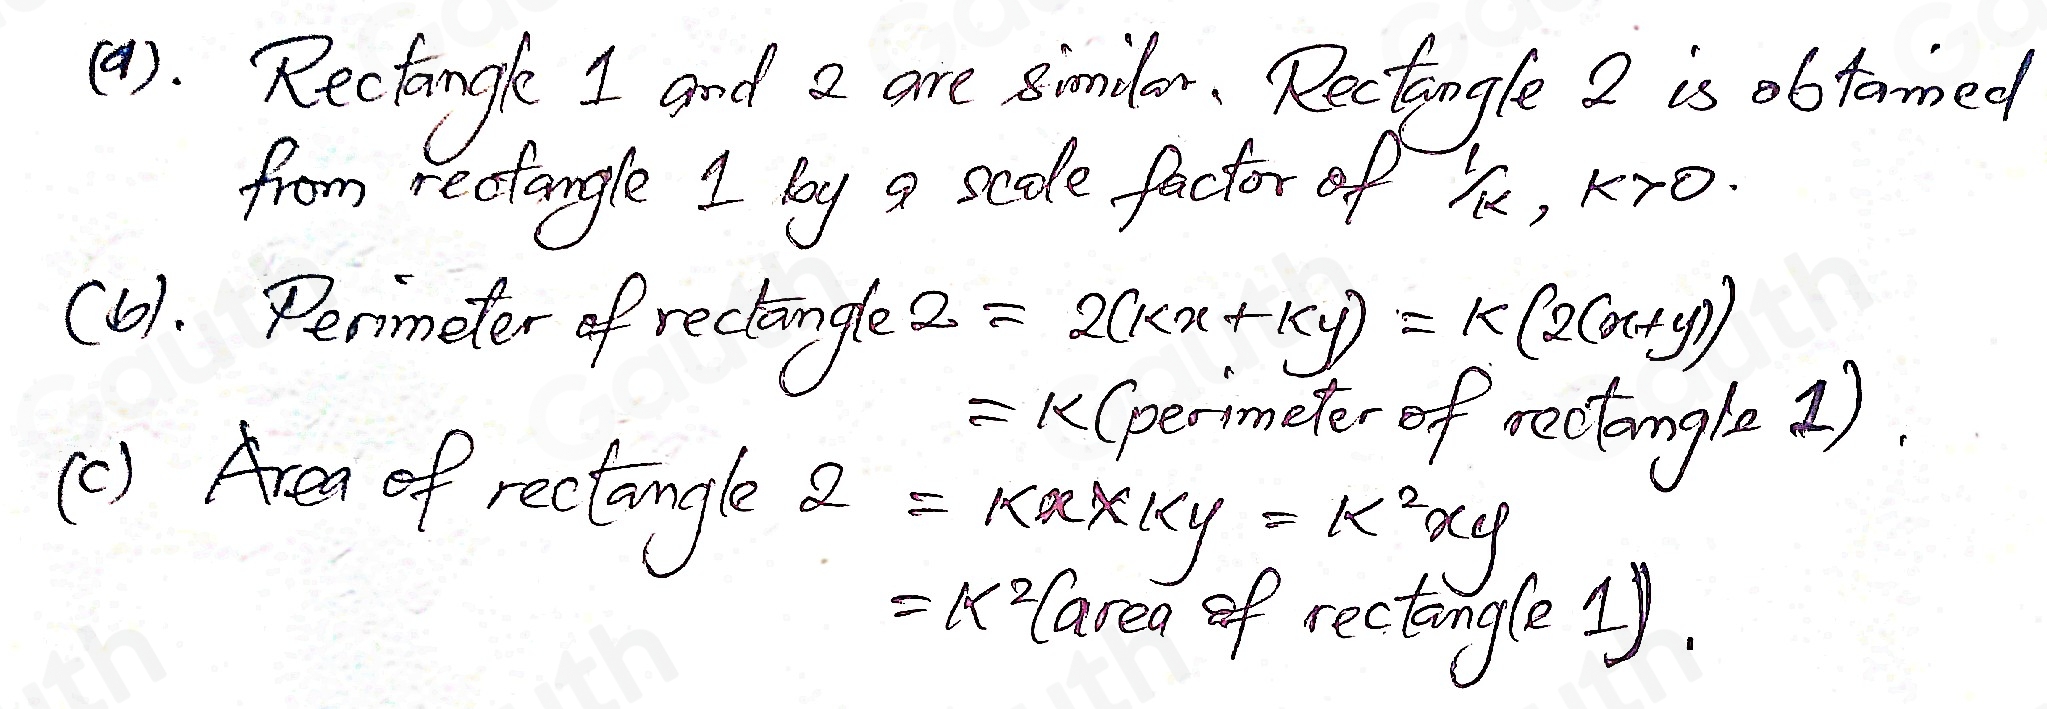 (a). Rectangle 1 and 2 are similar. Rectangle 2 is obtained
from rectangle 1 by a scale factor of 1/K, K>0.
(b). Perimeter of rectangle 2 = 2(Kx+Ky) = K(2(x+y))
= K(perimeter of rectangle 1).
(c) Area of rectangle 2 = Kx×Ky = K²xy
= K²(area of rectangle 1).